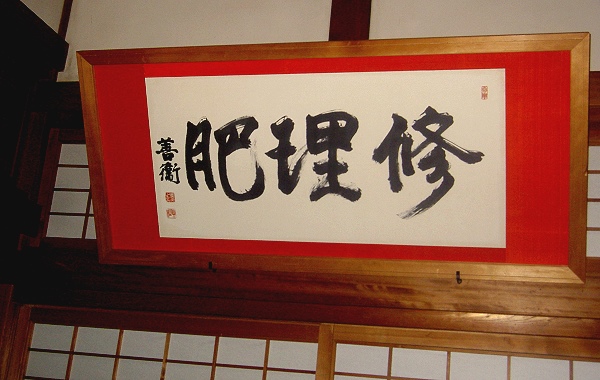 修理肥
善衛